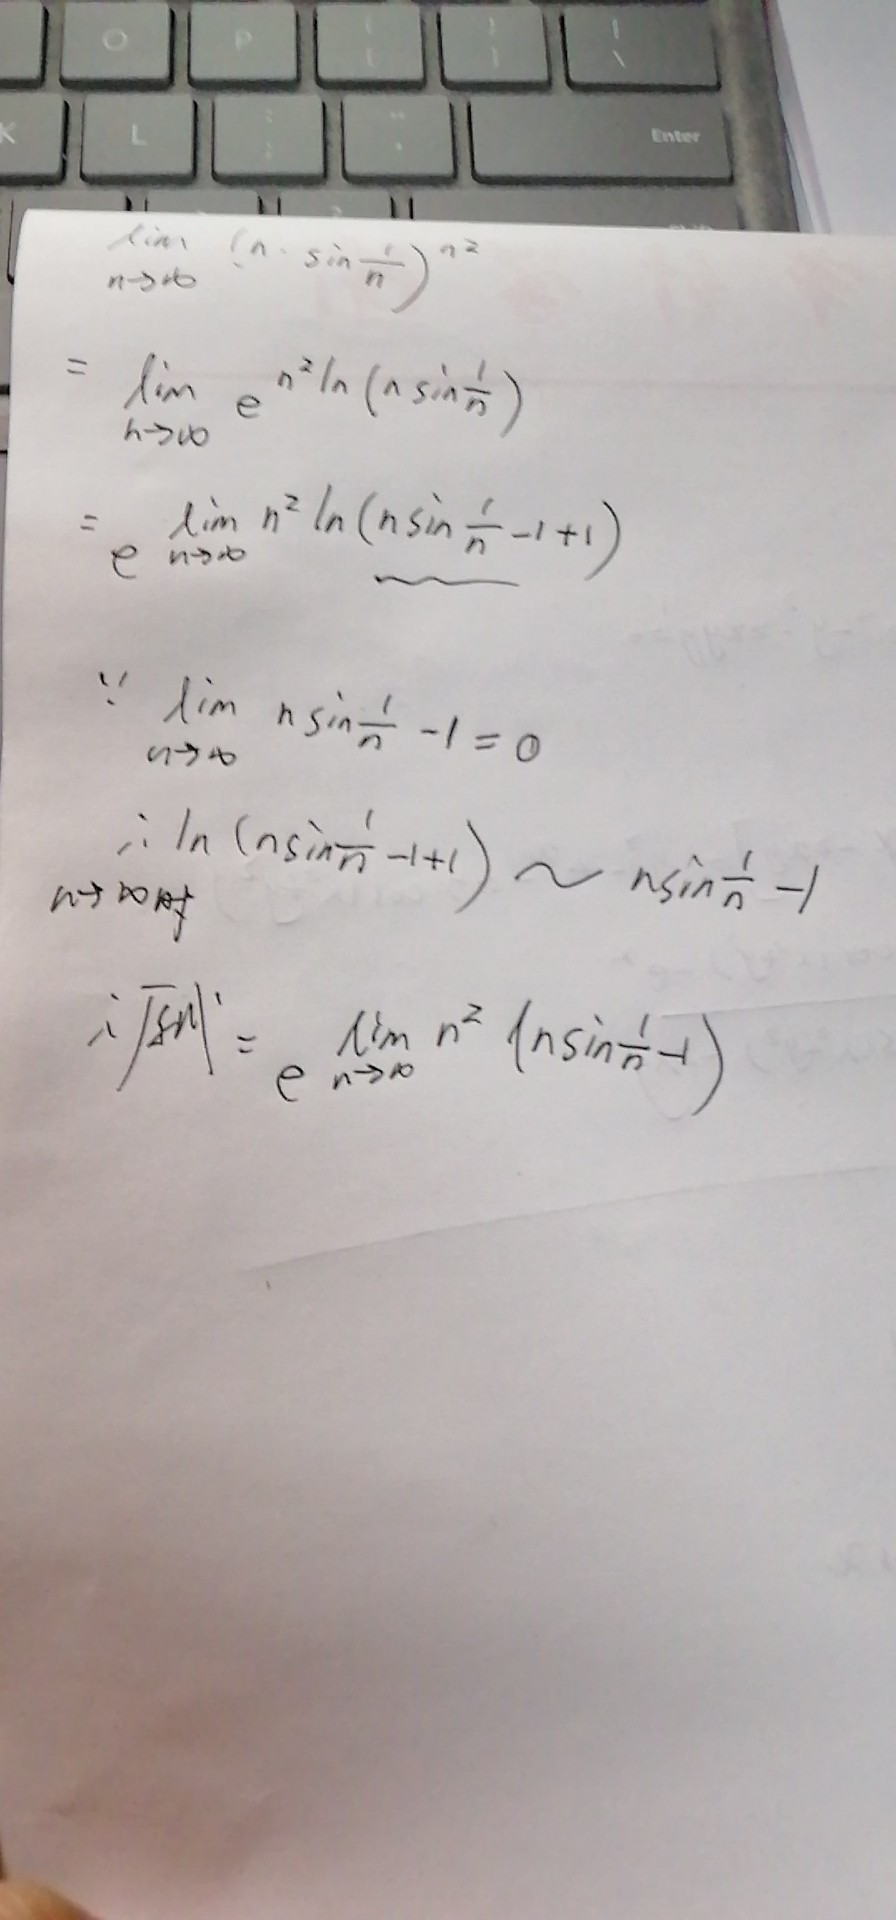 O P { [ } ] | \
K L : ; " ' Enter
lim n→∞ (n·sin 1/n)^n²
= lim n→∞ e^n² ln(n sin 1/n)
= e^lim n→∞ n² ln(n sin 1/n -1+1)
∵ lim n→∞ n sin 1/n -1 = 0
∴ ln(n sin 1/n -1+1) ~ n sin 1/n -1
n→∞时
∴ 原式 = e^lim n→∞ n² (n sin 1/n -1)